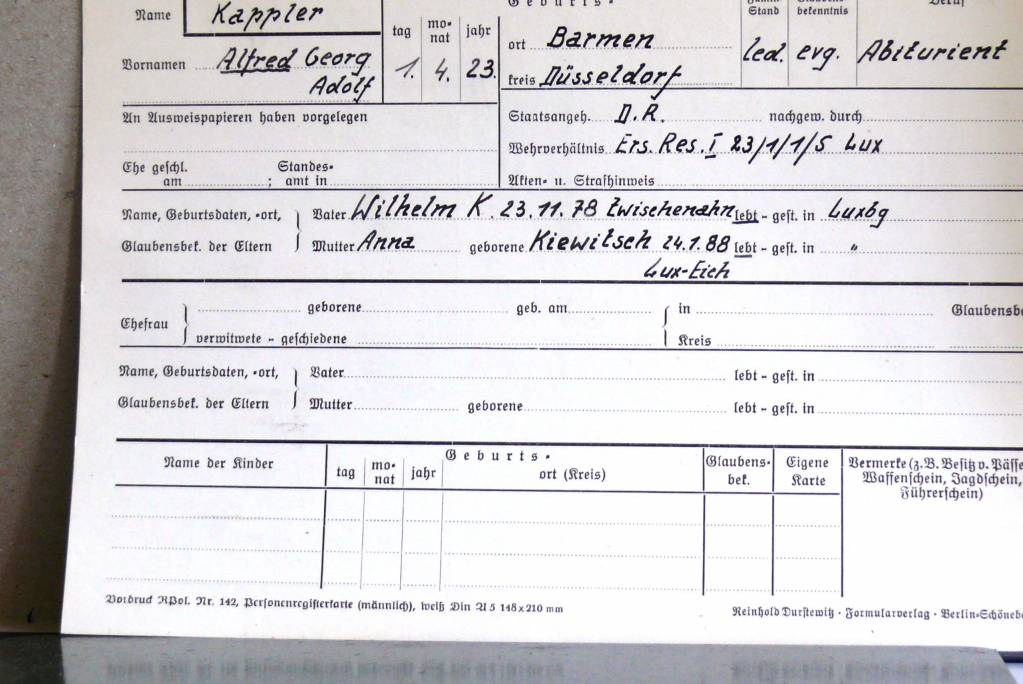 Geburts-
Stand
bekenntnis
Name Kappler
tag monat jahr
ort Barmen
led. evg. Abiturient
Vornamen Alfred Georg
Adolf
1. 4. 23.
kreis Düsseldorf
An Ausweispapieren haben vorgelegen
Staatsangeh. D.R. nachgew. durch
Wehrverhältnis Ers. Res. I 23/1/1/5 Lux
Ehe geschl. Standes-
am ; amt in
Akten- u. Strafhinweis
Name, Geburtsdaten, -ort, Vater Wilhelm K. 23.11.78 Zwischenahn lebt - gest. in Luxbg
Glaubensbek. der Eltern Mutter Anna geborene Kiewitsch 24.1.88 lebt - gest. in "
Lux-Eich
geborene geb. am in Glaubensbe
Ehefrau
verwitwete - geschiedene Kreis
Name, Geburtsdaten, -ort, Vater lebt - gest. in
Glaubensbek. der Eltern Mutter geborene lebt - gest. in
Name der Kinder
Geburts-
tag monat jahr ort (Kreis)
Glaubens-
bek.
Eigene
Karte
Vermerke (z.B. Besitz v. Pässe
Waffenschein, Jagdschein,
Führerschein)
Vordruck RPol. Nr. 142, Personenregisterkarte (männlich), weiß Din A 5 148x210 mm
Reinhold Durstewitz · Formularverlag · Berlin-Schöneb